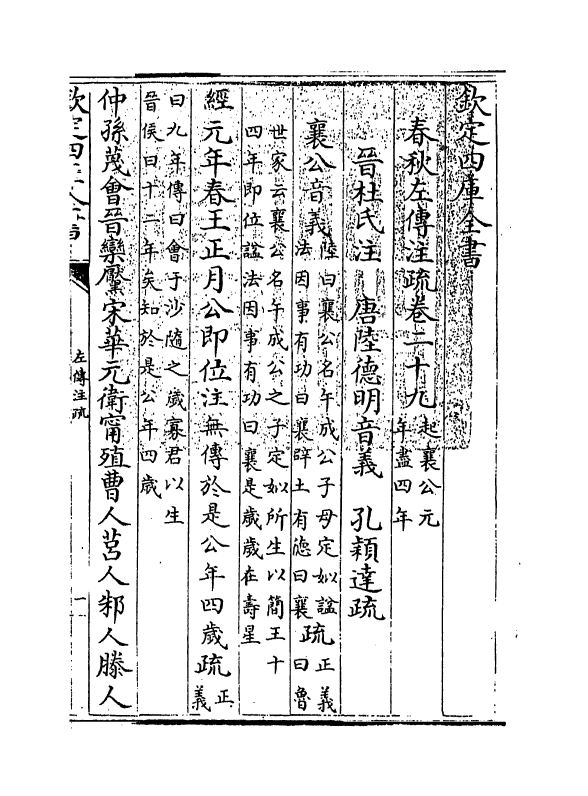 欽定四庫全書
春秋左傳注疏卷二十九起襄公元年盡四年
晉杜氏注 唐陸德明音義 孔穎達疏
襄公音義陸曰襄公名午成公子母定姒諡法因事有功曰襄辟土有德曰襄疏正義曰魯
世家云襄公名午成公之子定姒所生以簡王十四年即位諡法因事有功曰襄是歲歲在壽星
經元年春王正月公即位注無傳於是公年四歲疏正義
曰九年傳曰會于沙隨之歲寡君以生晉侯曰十二年矣知於是公年四歲
仲孫蔑會晉欒黶宋華元衛甯殖曹人莒人邾人滕人
欽定四庫全書
左傳注疏
一